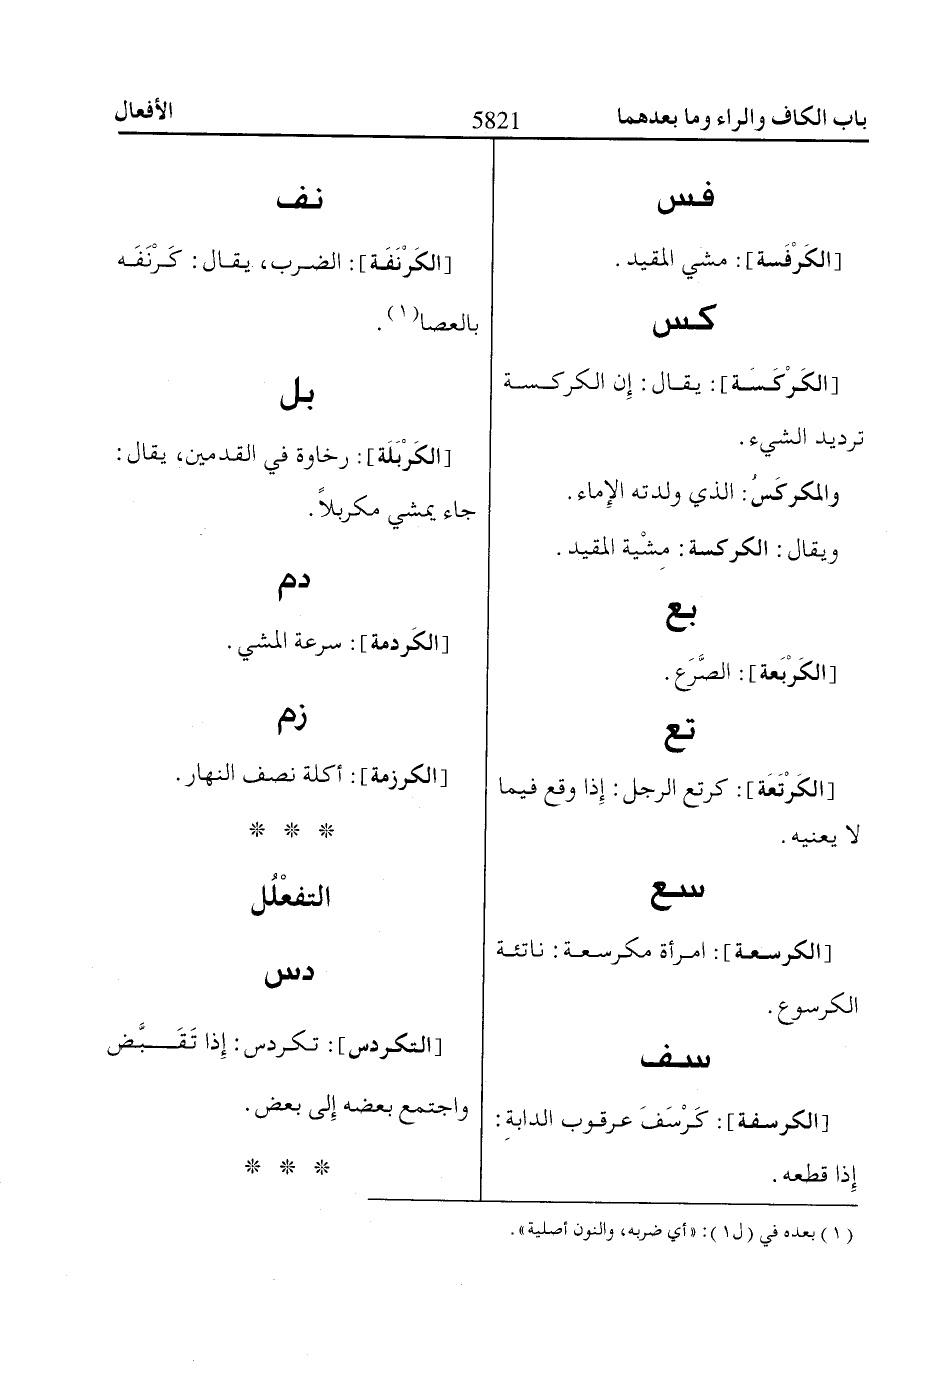 باب الكاف والراء وما بعدهما 5821 الأفعال
فس
[الكَرْفَسة]: مشي المقيد.
كس
[الكَرْكَسَة]: يقال: إن الكركسة
ترديد الشيء.
والمكركَسُ: الذي ولدته الإماء.
ويقال: الكركسة: مِشْية المقيد.
بع
[الكَرْبَعة]: الصَّرَع.
تع
[الكَرْتَعَة]: كرتع الرجل: إذا وقع فيما
لا يعنيه.
سع
[الكرسعة]: امرأة مكرسعة: ناتئة
الكرسوع.
سف
[الكرسفة]: كَرْسَفَ عرقوب الدابةِ:
إذا قطعه.
نف
[الكَرْنَفَة]: الضرب، يقال: كَرْنَفَه
بالعصا(١).
بل
[الكَرْبَلَة]: رخاوة في القدمين، يقال:
جاء يمشي مكربلاً.
دم
[الكَردمة]: سرعة المشي.
زم
[الكرزمة]: أكلة نصف النهار.
* * *
التفعْلُل
دس
[التكردس]: تكردس: إذا تَقَبَّض
واجتمع بعضه إلى بعض.
* * *
(١) بعده في (ل١): «أي ضربه، والنون أصلية».